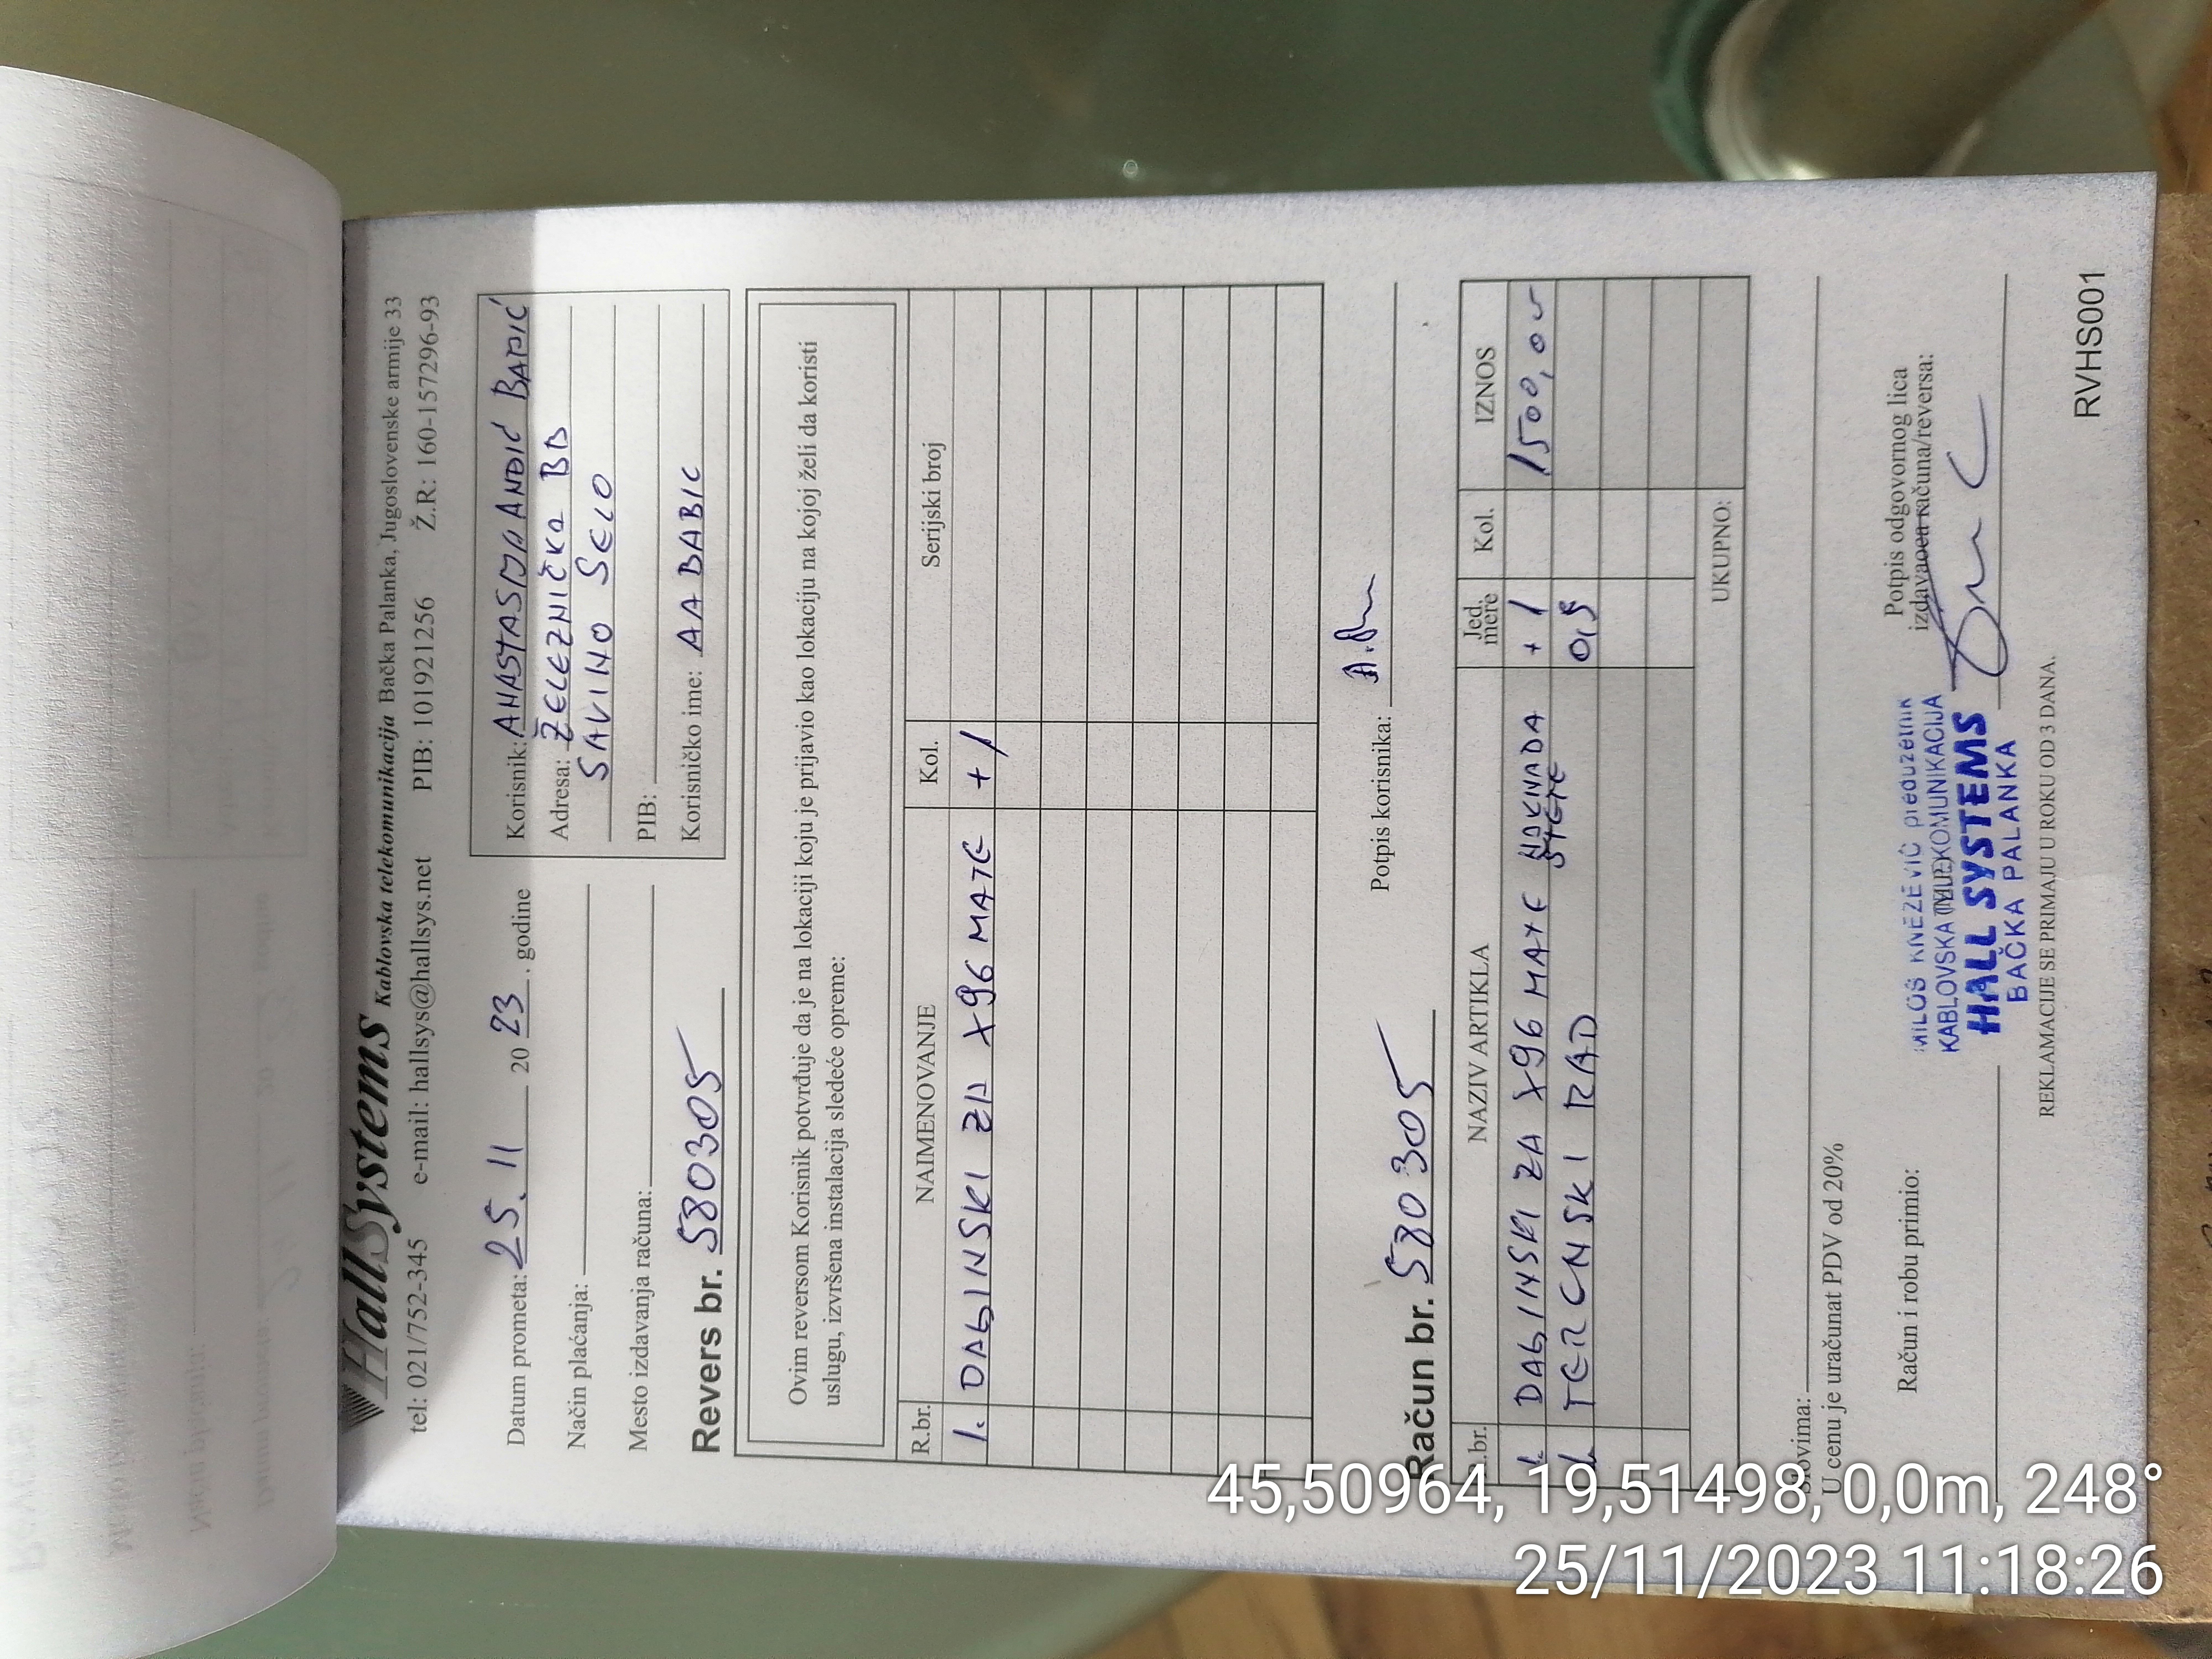 HallSystems Kablovska telekomunikacija Bačka Palanka, Jugoslovenske armije 33
tel: 021/752-345 e-mail: hallsys@hallsys.net PIB: 101921256 Ž.R: 160-157296-93
Datum prometa: 25. 11 20 23. godine
Način plaćanja:
Mesto izdavanja računa:
Revers br. 580305
Korisnik: ANASTASIJA ANDIĆ BABIĆ
Adresa: ŽELEZNIČKA BB
SAVINO SELO
PIB:
Korisničko ime: AA BABIC
Ovim reversom Korisnik potvrđuje da je na lokaciji koju je prijavio kao lokaciju na kojoj želi da koristi
uslugu, izvršena instalacija sledeće opreme:
R.br. NAIMENOVANJE Kol. Serijski broj
1. DALJINSKI ZA X96 MATE +1
Potpis korisnika:
Račun br. 580305
R.br. NAZIV ARTIKLA Jed. mere Kol. IZNOS
DALJINSKI ZA X96 MATE NAKNADA ŠTETE +1 1500,00
TERENSKI RAD 0,5
UKUPNO:
Slovima:
U cenu je uračunat PDV od 20%
Račun i robu primio:
Potpis odgovornog lica
izdavaoca računa/reversa:
MILOŠ KNEŽEVIĆ preduzetnik
KABLOVSKA TELEKOMUNIKACIJA
HALL SYSTEMS
BAČKA PALANKA
REKLAMACIJE SE PRIMAJU U ROKU OD 3 DANA.
RVHS001
45,50964, 19,51498, 0,0m, 248°
25/11/2023 11:18:26